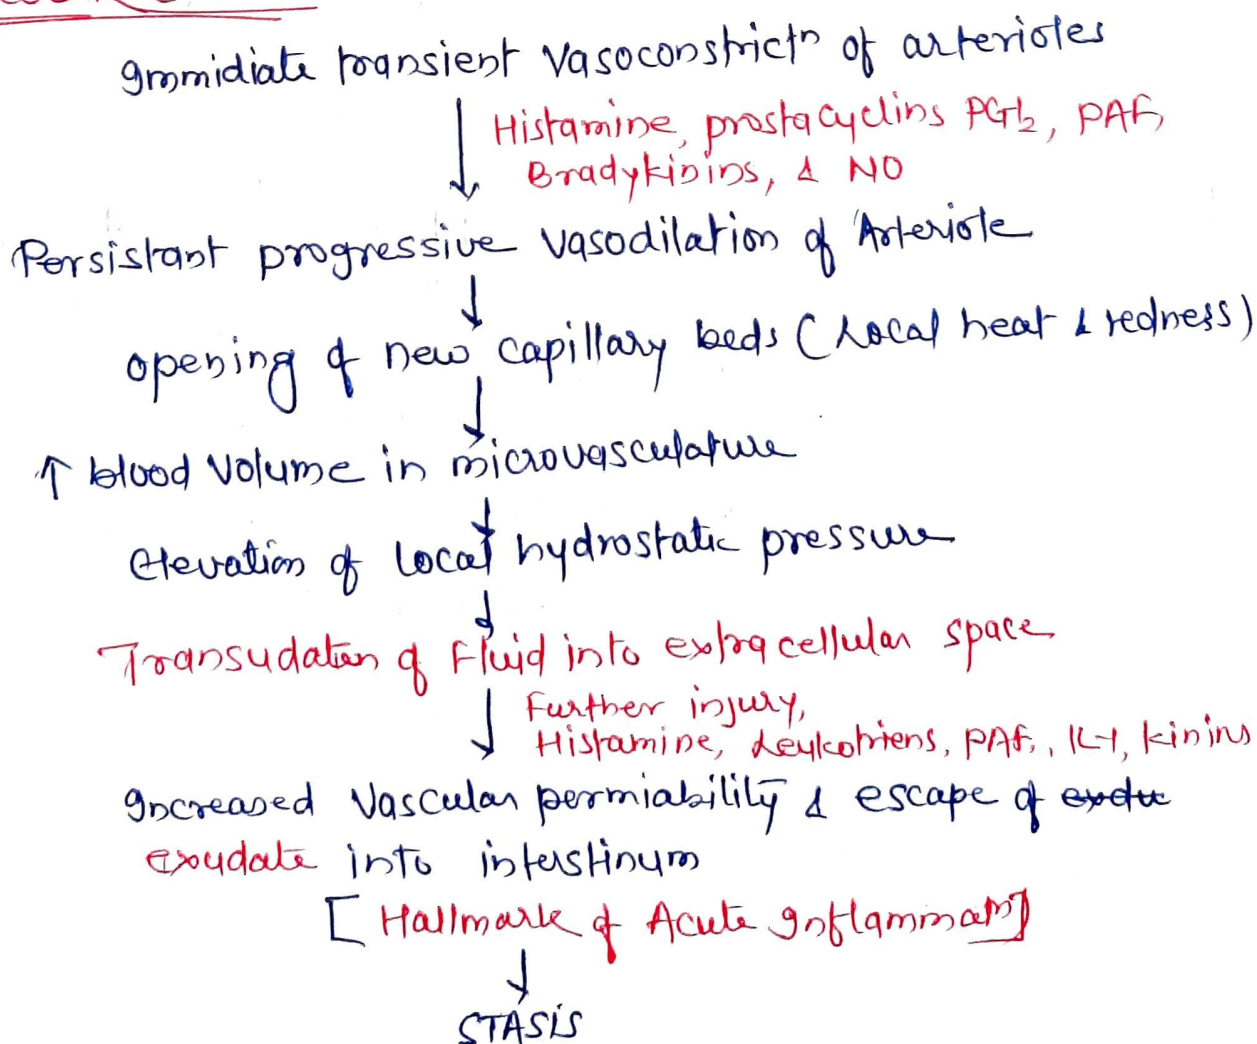 Immidiate transient vasoconstrictn of arterioles
Histamine, prostacyclins PGI2, PAF,
Bradykinins, & NO
Persistant progressive vasodilation of Arteriole
opening of new capillary beds (Local heat & redness)
↑ blood volume in microvasculature
Elevation of local hydrostatic pressure
Transudation of Fluid into extracellular space
Further injury,
Histamine, Leukotriens, PAF, IL-1, kinins
Increased Vascular permiability & escape of exdu
exudate into interstinum
[Hallmark of Acute Inflammatn]
STASIS